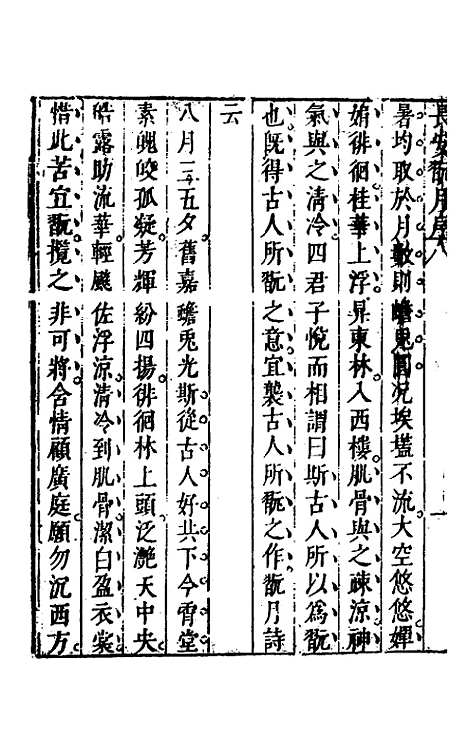 長安翫月序
暑均取於月數則蟾兎圓況埃𡏖不流大空悠悠嬋
娟徘徊桂華上浮昇東林入西樓肌骨與之疎涼神
氣與之清冷四君子悅而相謂曰斯古人所以為翫
也旣得古人所翫之意宜襲古人所翫之作翫月詩
云
八月十五夕舊嘉蟾兎光斯從古人好共下今宵堂
素魄皎孤凝芳輝紛四揚徘徊林上頭泛灧天中央
皓露助流華輕飈佐浮涼清冷到肌骨潔白盈衣裳
惜此苦宜翫攬之非可將含情顧廣庭願勿沉西方